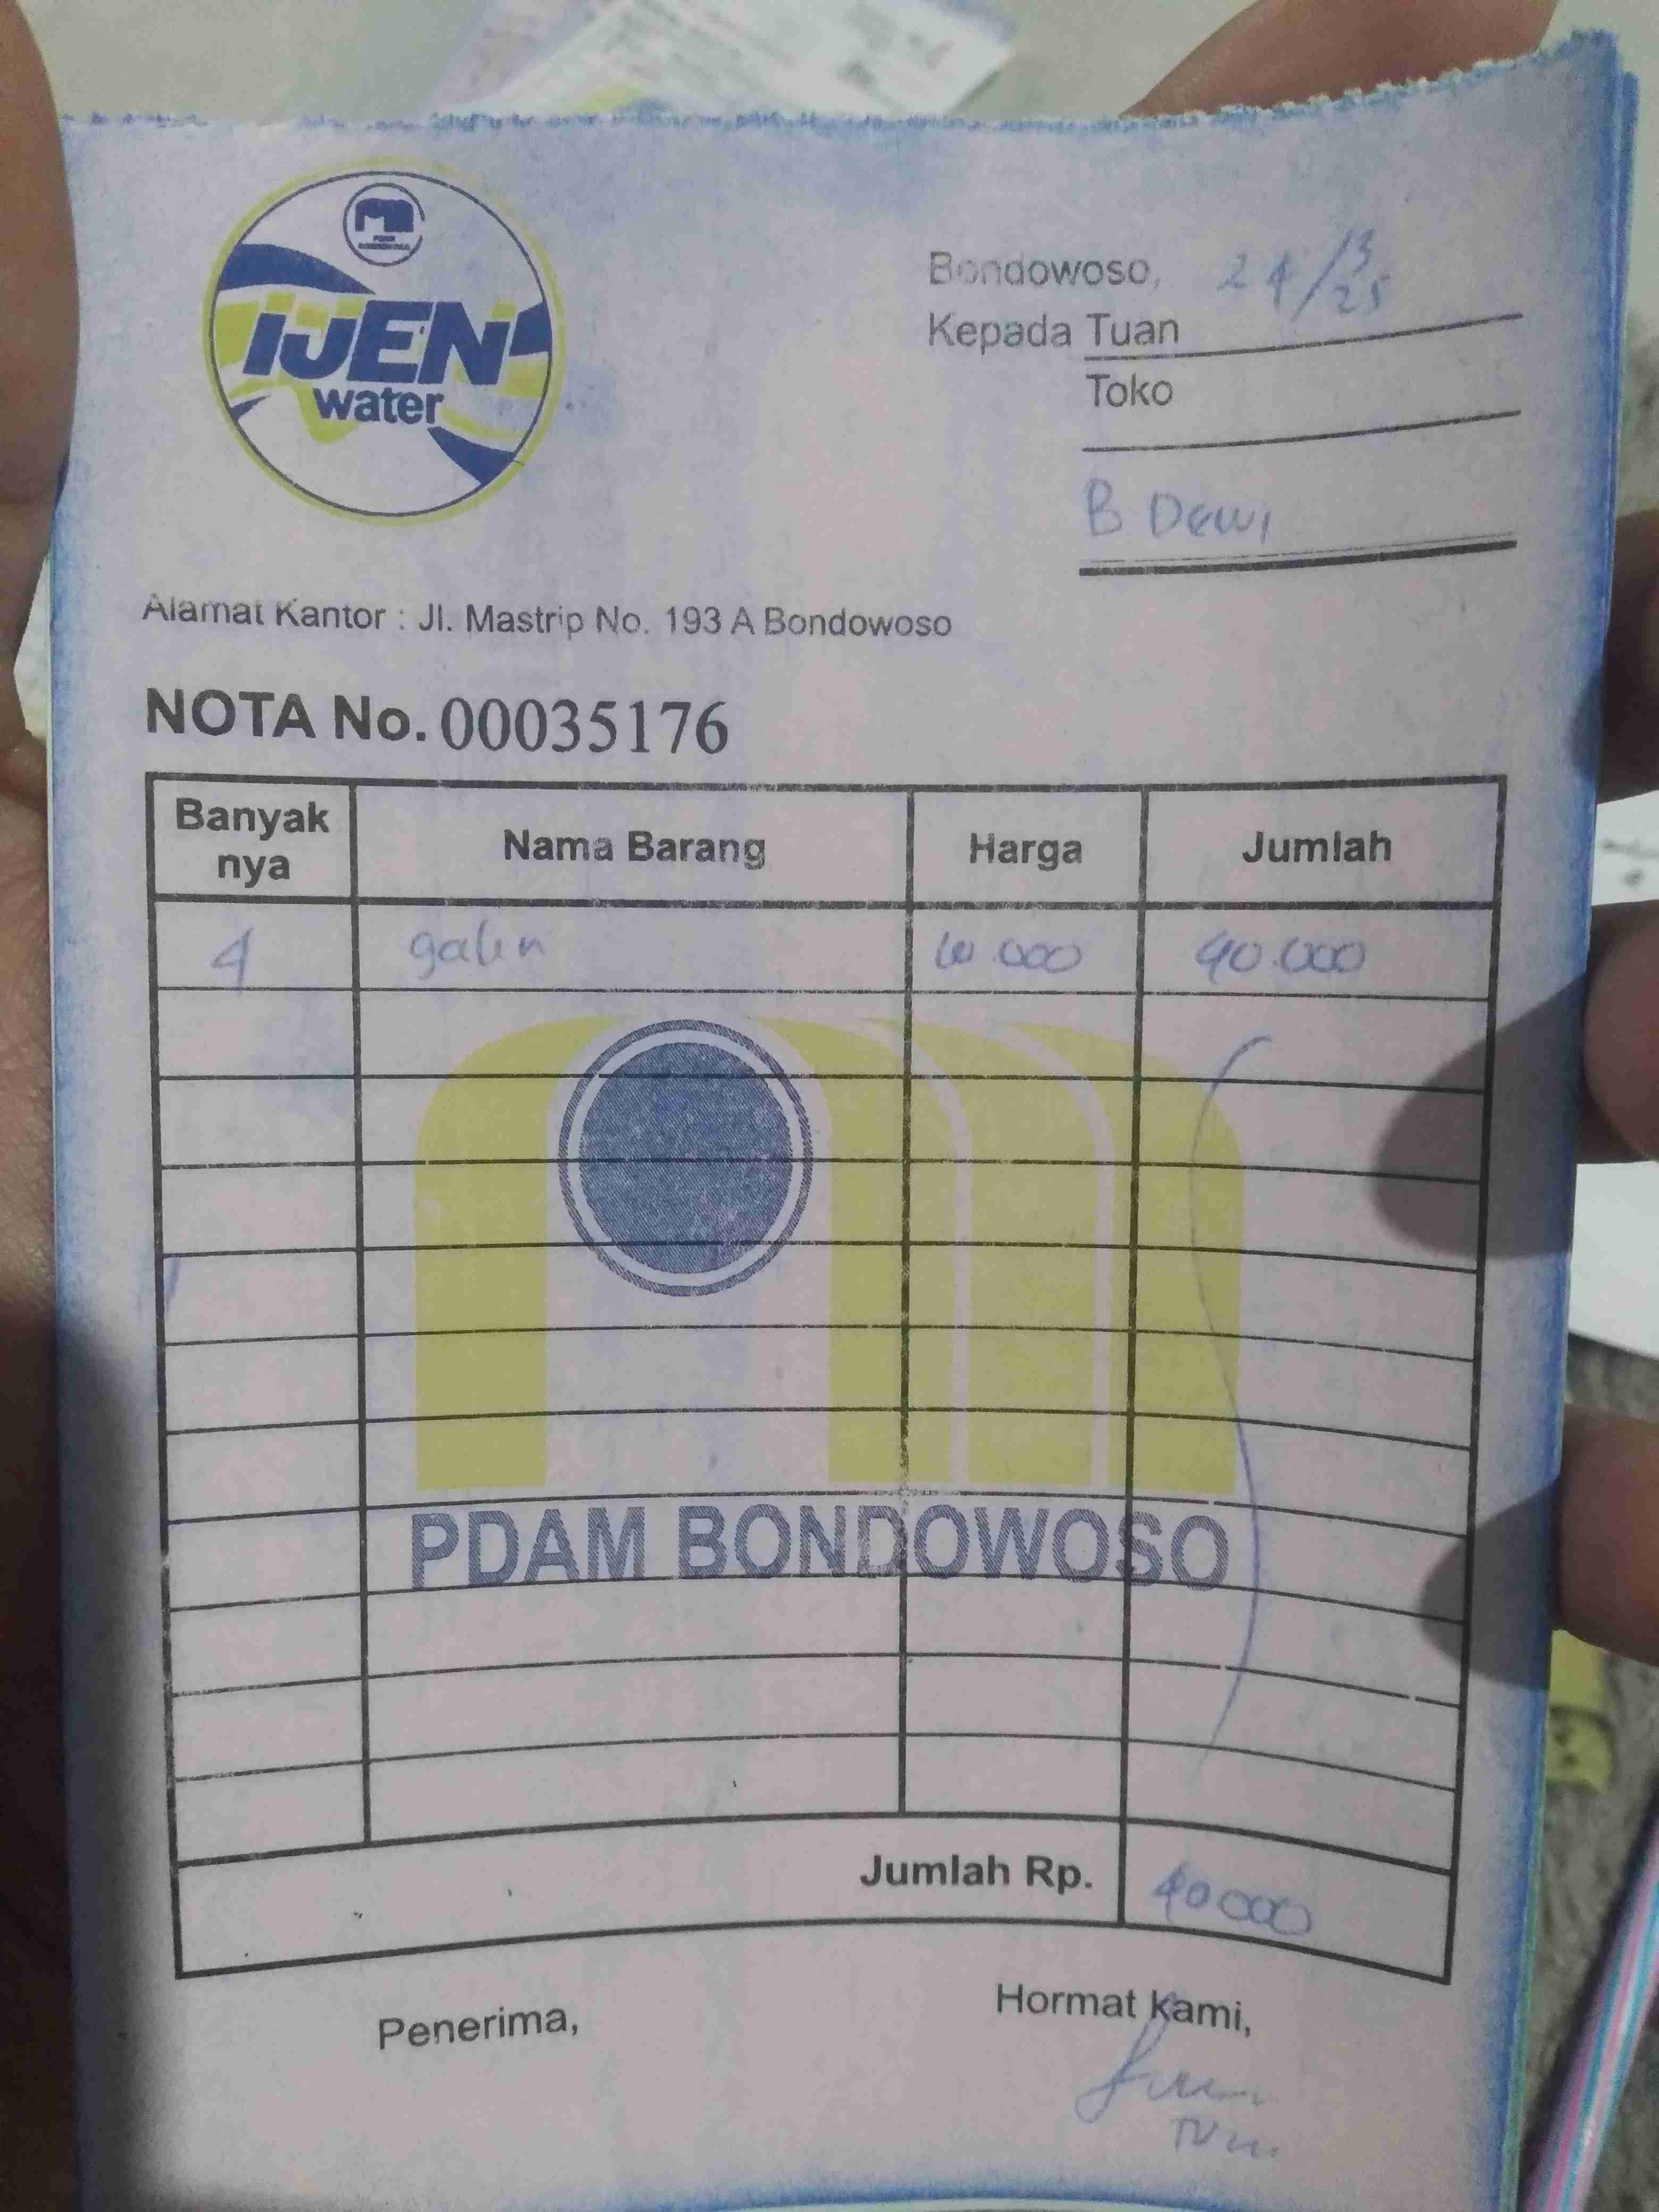 IJEN
water
Bondowoso, 24/3/25
Kepada Tuan
Toko
B Dewi
Alamat Kantor : Jl. Mastrip No. 193 A Bondowoso
NOTA No. 00035176
Banyak nya Nama Barang Harga Jumlah
4 galon 10.000 40.000
PDAM BONDOWOSO
Jumlah Rp. 40000
Penerima, Hormat kami,